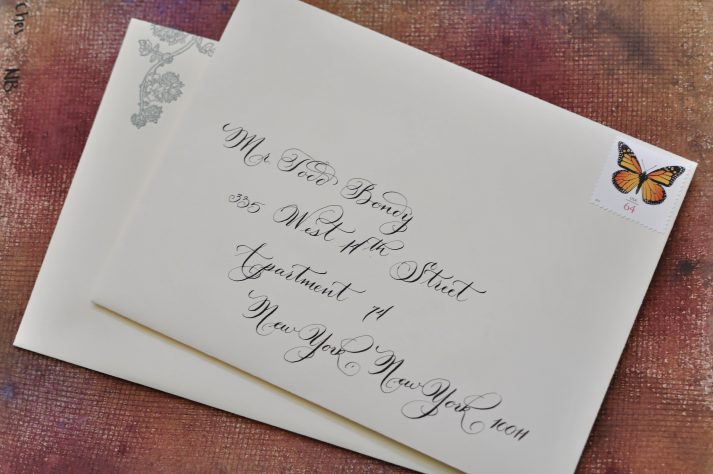 Mr Todd Bondy
335 West 14th Street
Apartment 7d
New York New York 10011
USA
64